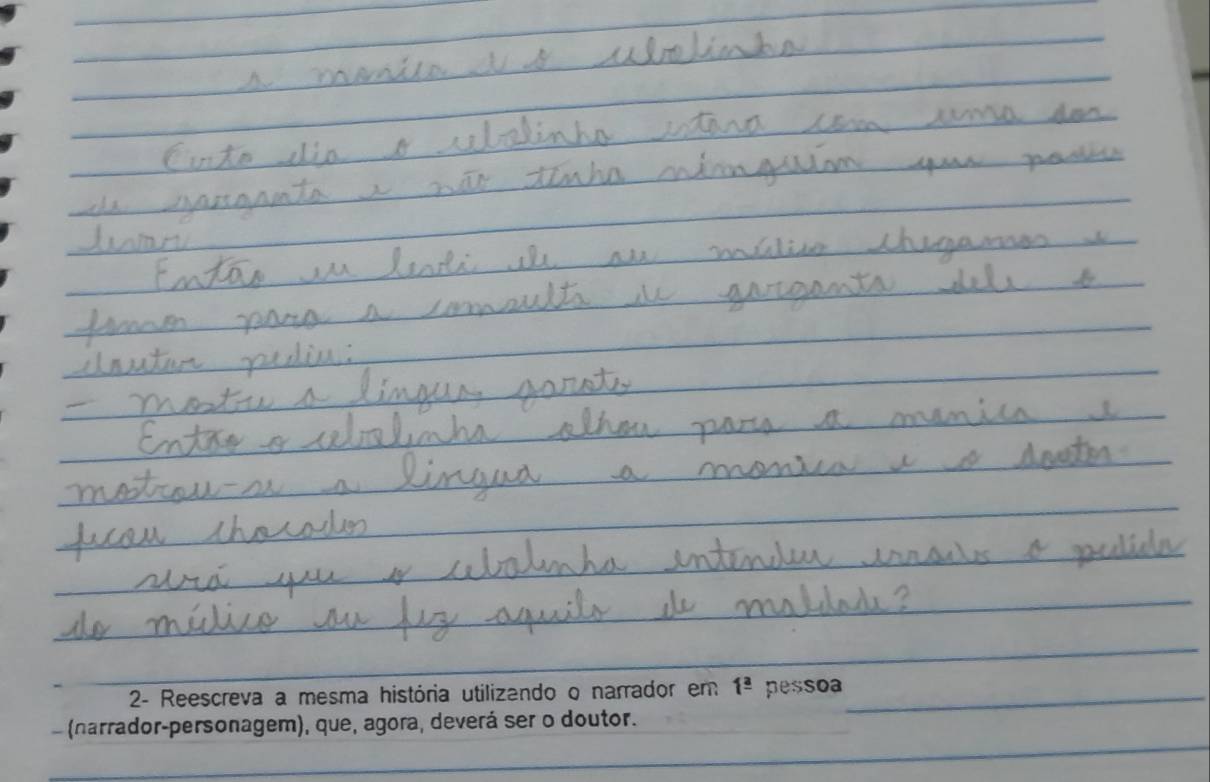 a monica e o cebolinha
Certo dia o cebolinha estava com uma dor
de garganta e não tinha ninguém que podia
levar
Então eu levei ele au médico chegamos e
fomos para a consulta de garganta dele o
doutor pediu:
- mostre a língua, garoto
Então o cebolinha olhou para a monica e
mostrou-se a língua a monica e o doutor
ficou chocados
será que o cebolinha entendeu errado o pedido
do médico ou fez aquilo de maldade?
2- Reescreva a mesma história utilizando o narrador em 1ª pessoa
(narrador-personagem), que, agora, deverá ser o doutor.